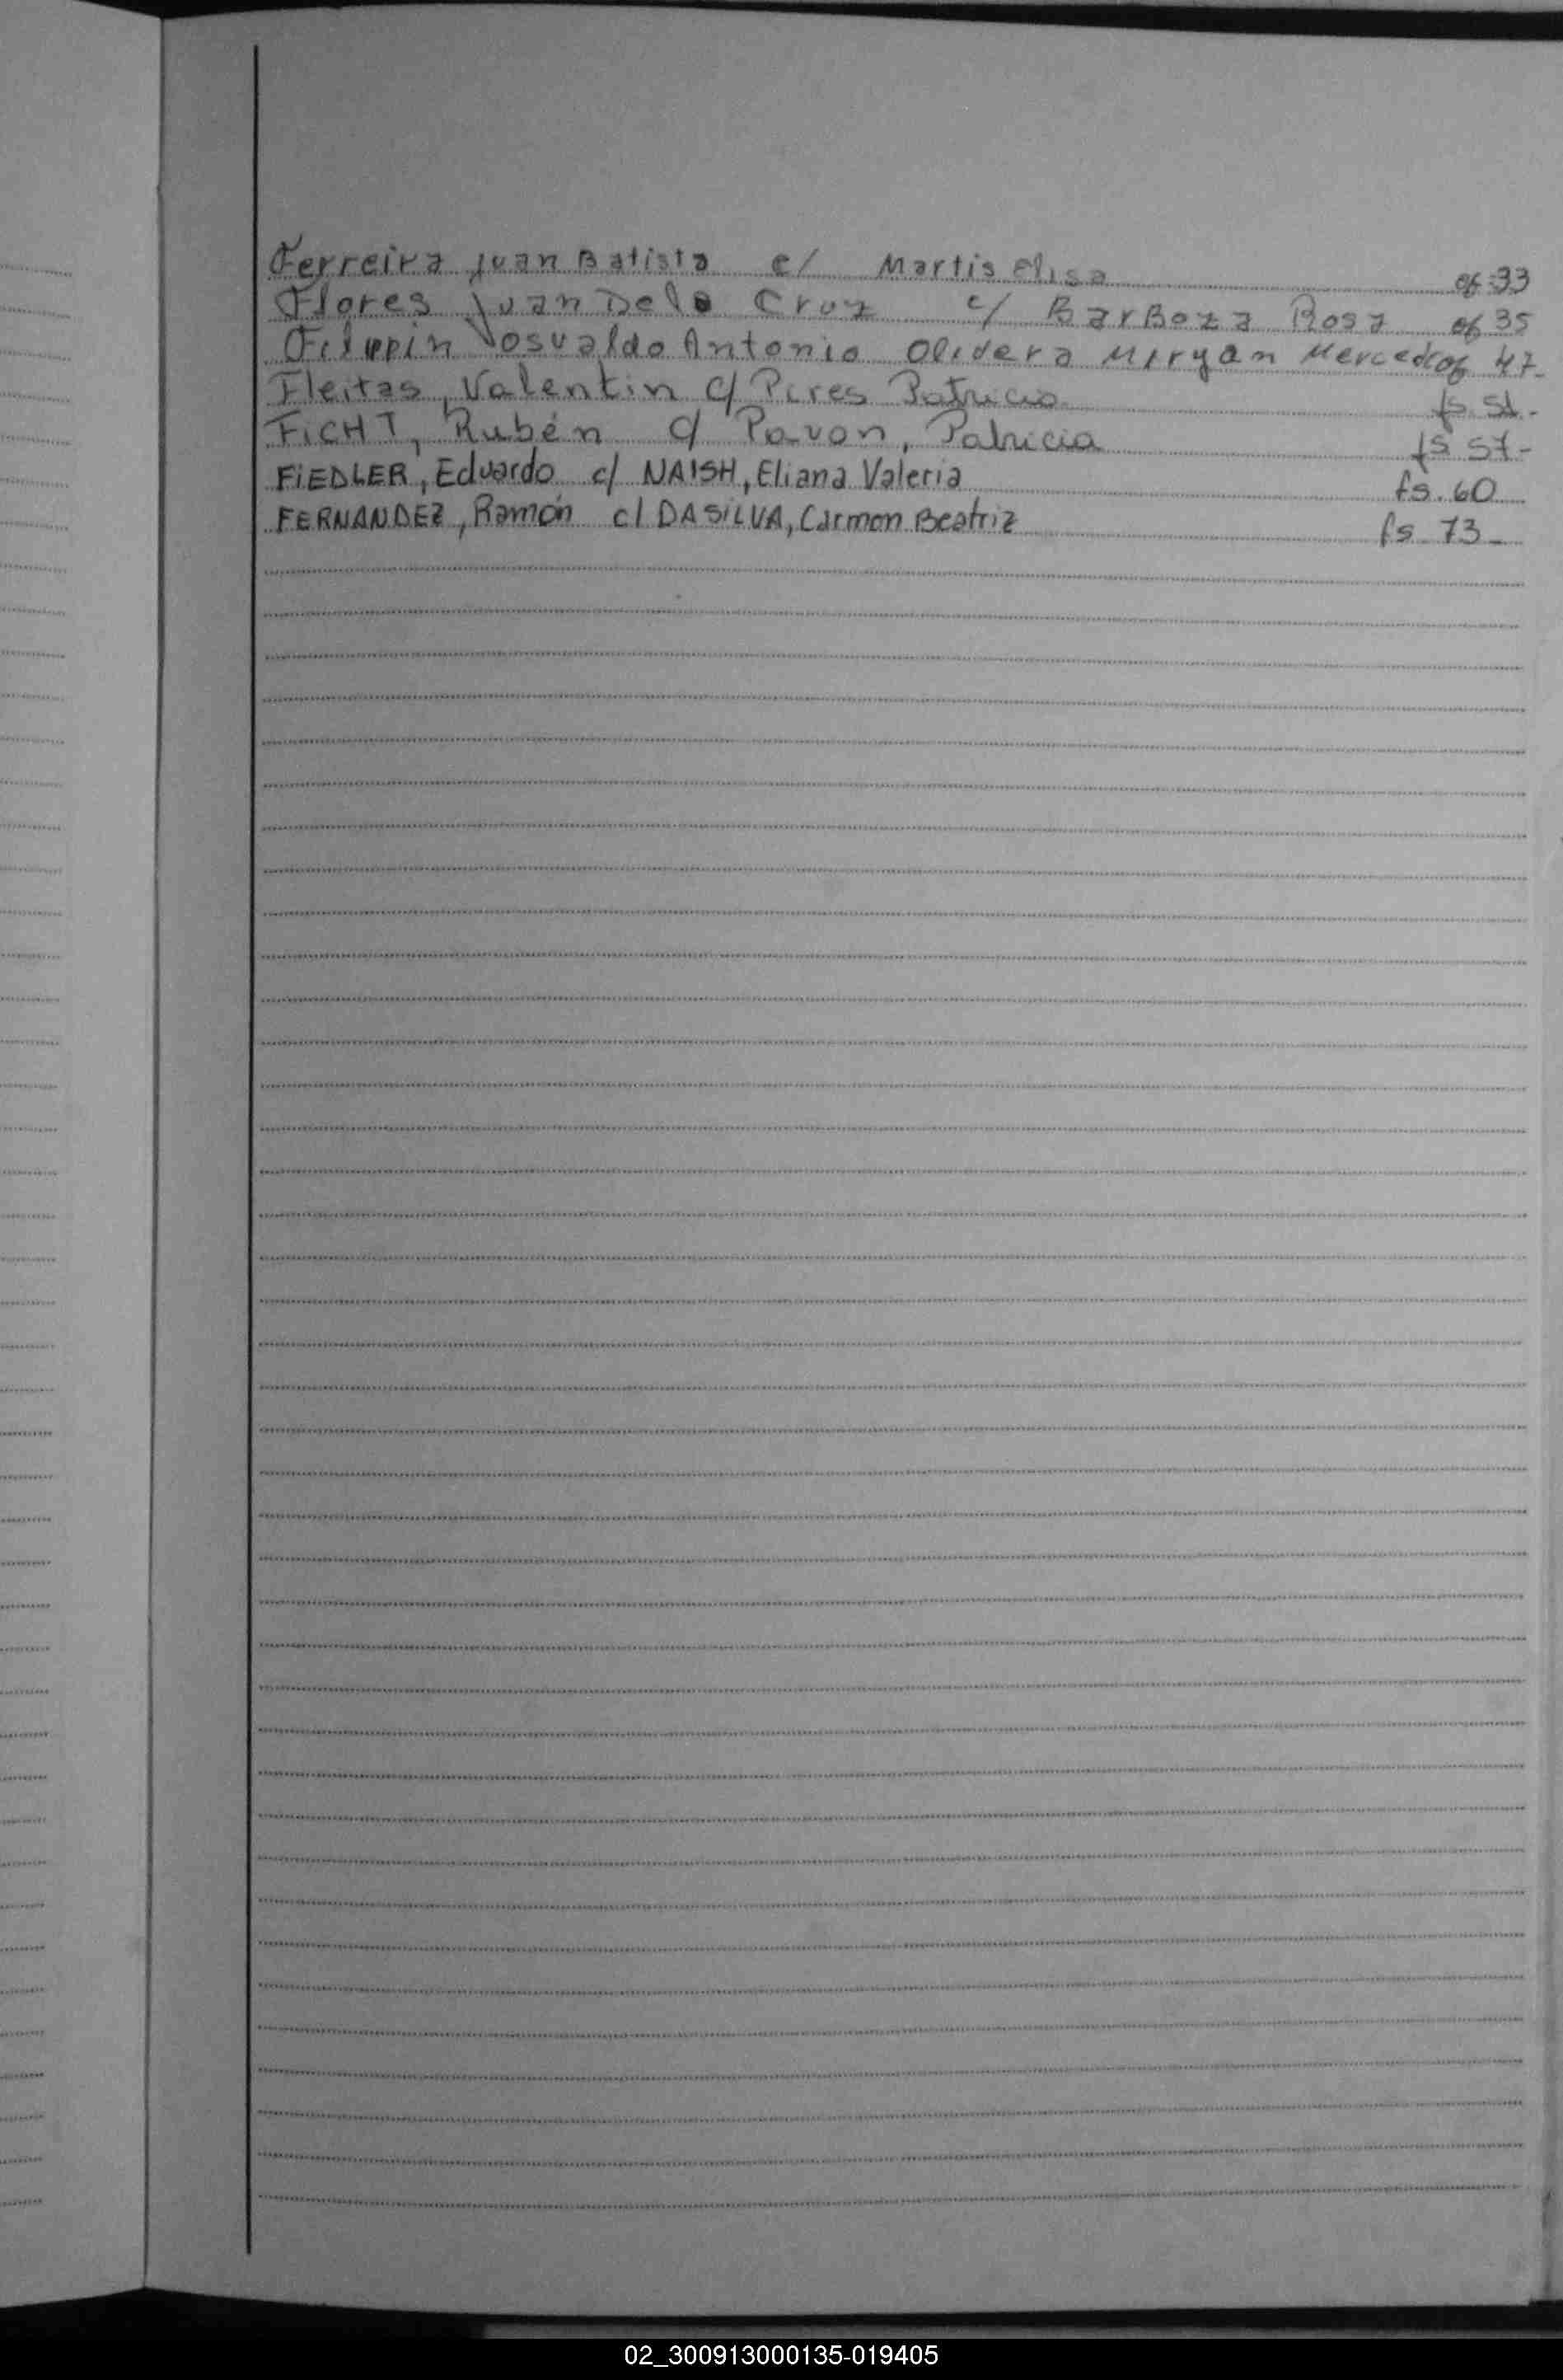 Ferreira Juan Batista c/ Martis Elisa of 33
Flores Juan Dela Cruz c/ BarBoza Rosa of 35
Filippin Josvaldo Antonio Olivera Miryan Merced of 47-
Fleitas, Valentin c/ Pires Patricia fs 51.-
FiCHT, Rubén c/ Pavon, Patricia fs 57-
FiEDLER, Eduardo c/ NAISH, Eliana Valeria fs. 60
FERNANDEZ, Ramón c/ DASiLVA, Carmen Beatriz fs 73-
02_300913000135-019405